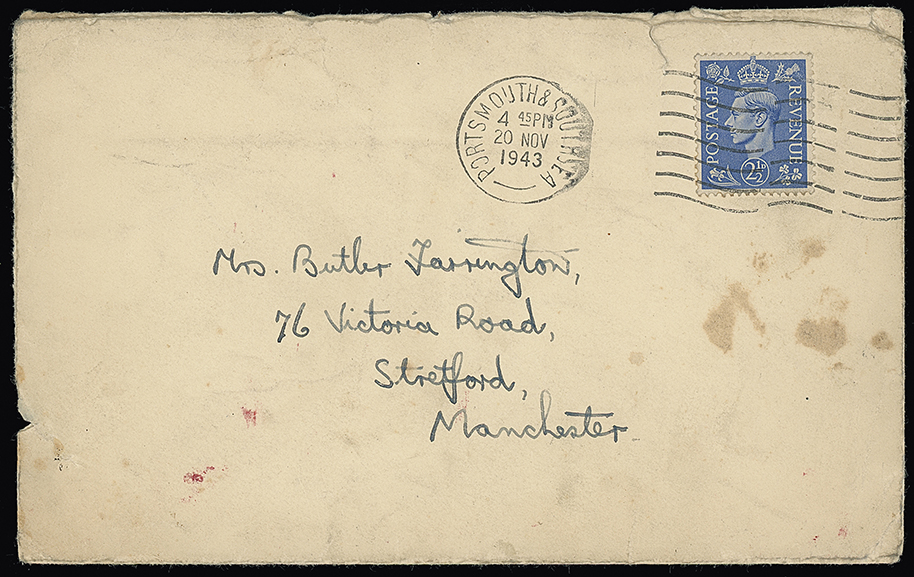 PORTSMOUTH & SOUTHSEA
4 45PM
20 NOV
1943
POSTAGE REVENUE
2½D
Mrs. Butler Farrington,
76 Victoria Road,
Stretford,
Manchester